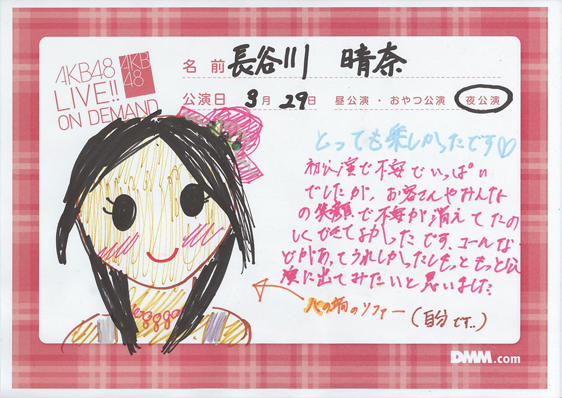 AKB48
LIVE!!
ON DEMAND
AKB
48
名 前 長谷川 晴奈
公演日 3月 29日 昼公演・おやつ公演 夜公演
とっても楽しかったです♡
初公演で不安でいっぱい
でしたが、お客さんやみんな
の笑顔で不安が消えてたの
しくできてよかったです。コールな
どがあってうれしかったしもっともっと公
演に出てみたいと思いました
(自分です..)
DMM.com